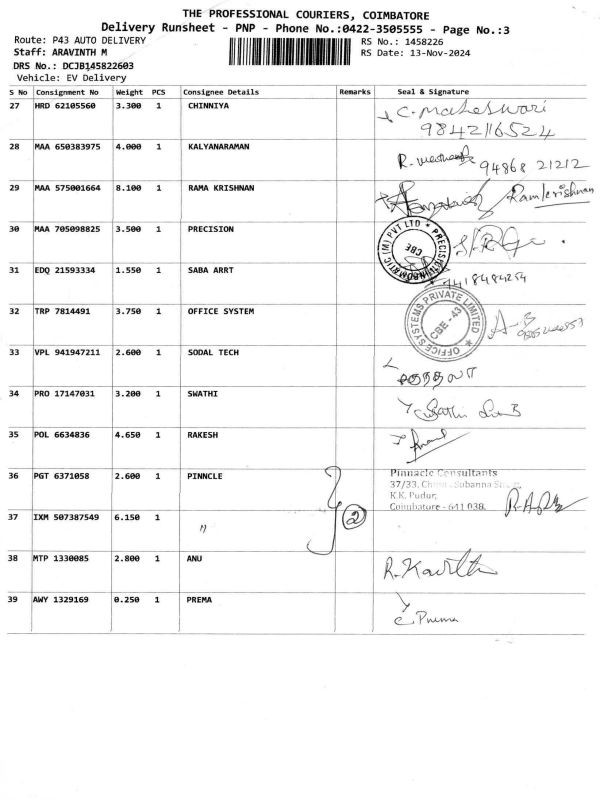 THE PROFESSIONAL COURIERS, COIMBATORE
Delivery Runsheet - PNP - Phone No.:0422-3505555 - Page No.:3
Route: P43 AUTO DELIVERY RS No.: 1458226
Staff: ARAVINTH M RS Date: 13-Nov-2024
DRS No.: DCJB145822603
Vehicle: EV Delivery
S No Consignment No Weight PCS Consignee Details Remarks Seal & Signature
27 HRD 62105560 3.300 1 CHINNIYA C. Maheswari
9842116524
28 MAA 650383975 4.000 1 KALYANARAMAN 94868 21212
29 MAA 575001664 8.100 1 RAMA KRISHNAN Ramkrishnan
30 MAA 705098825 3.500 1 PRECISION
31 EDQ 21593334 1.550 1 SABA ARRT
32 TRP 7814491 3.750 1 OFFICE SYSTEM OFFICE SYSTEMS PRIVATE LIMITED CBE - 43
33 VPL 941947211 2.600 1 SODAL TECH
34 PRO 17147031 3.200 1 SWATHI
35 POL 6634836 4.650 1 RAKESH
36 PGT 6371058 2.600 1 PINNCLE Pinnacle Consultants
37/33,
K.K. Pudur,
Coimbatore - 641 038.
37 IXM 507387549 6.150 1 〃 2
38 MTP 1330085 2.800 1 ANU R. Kavitha
39 AWY 1329169 0.250 1 PREMA C. Prema